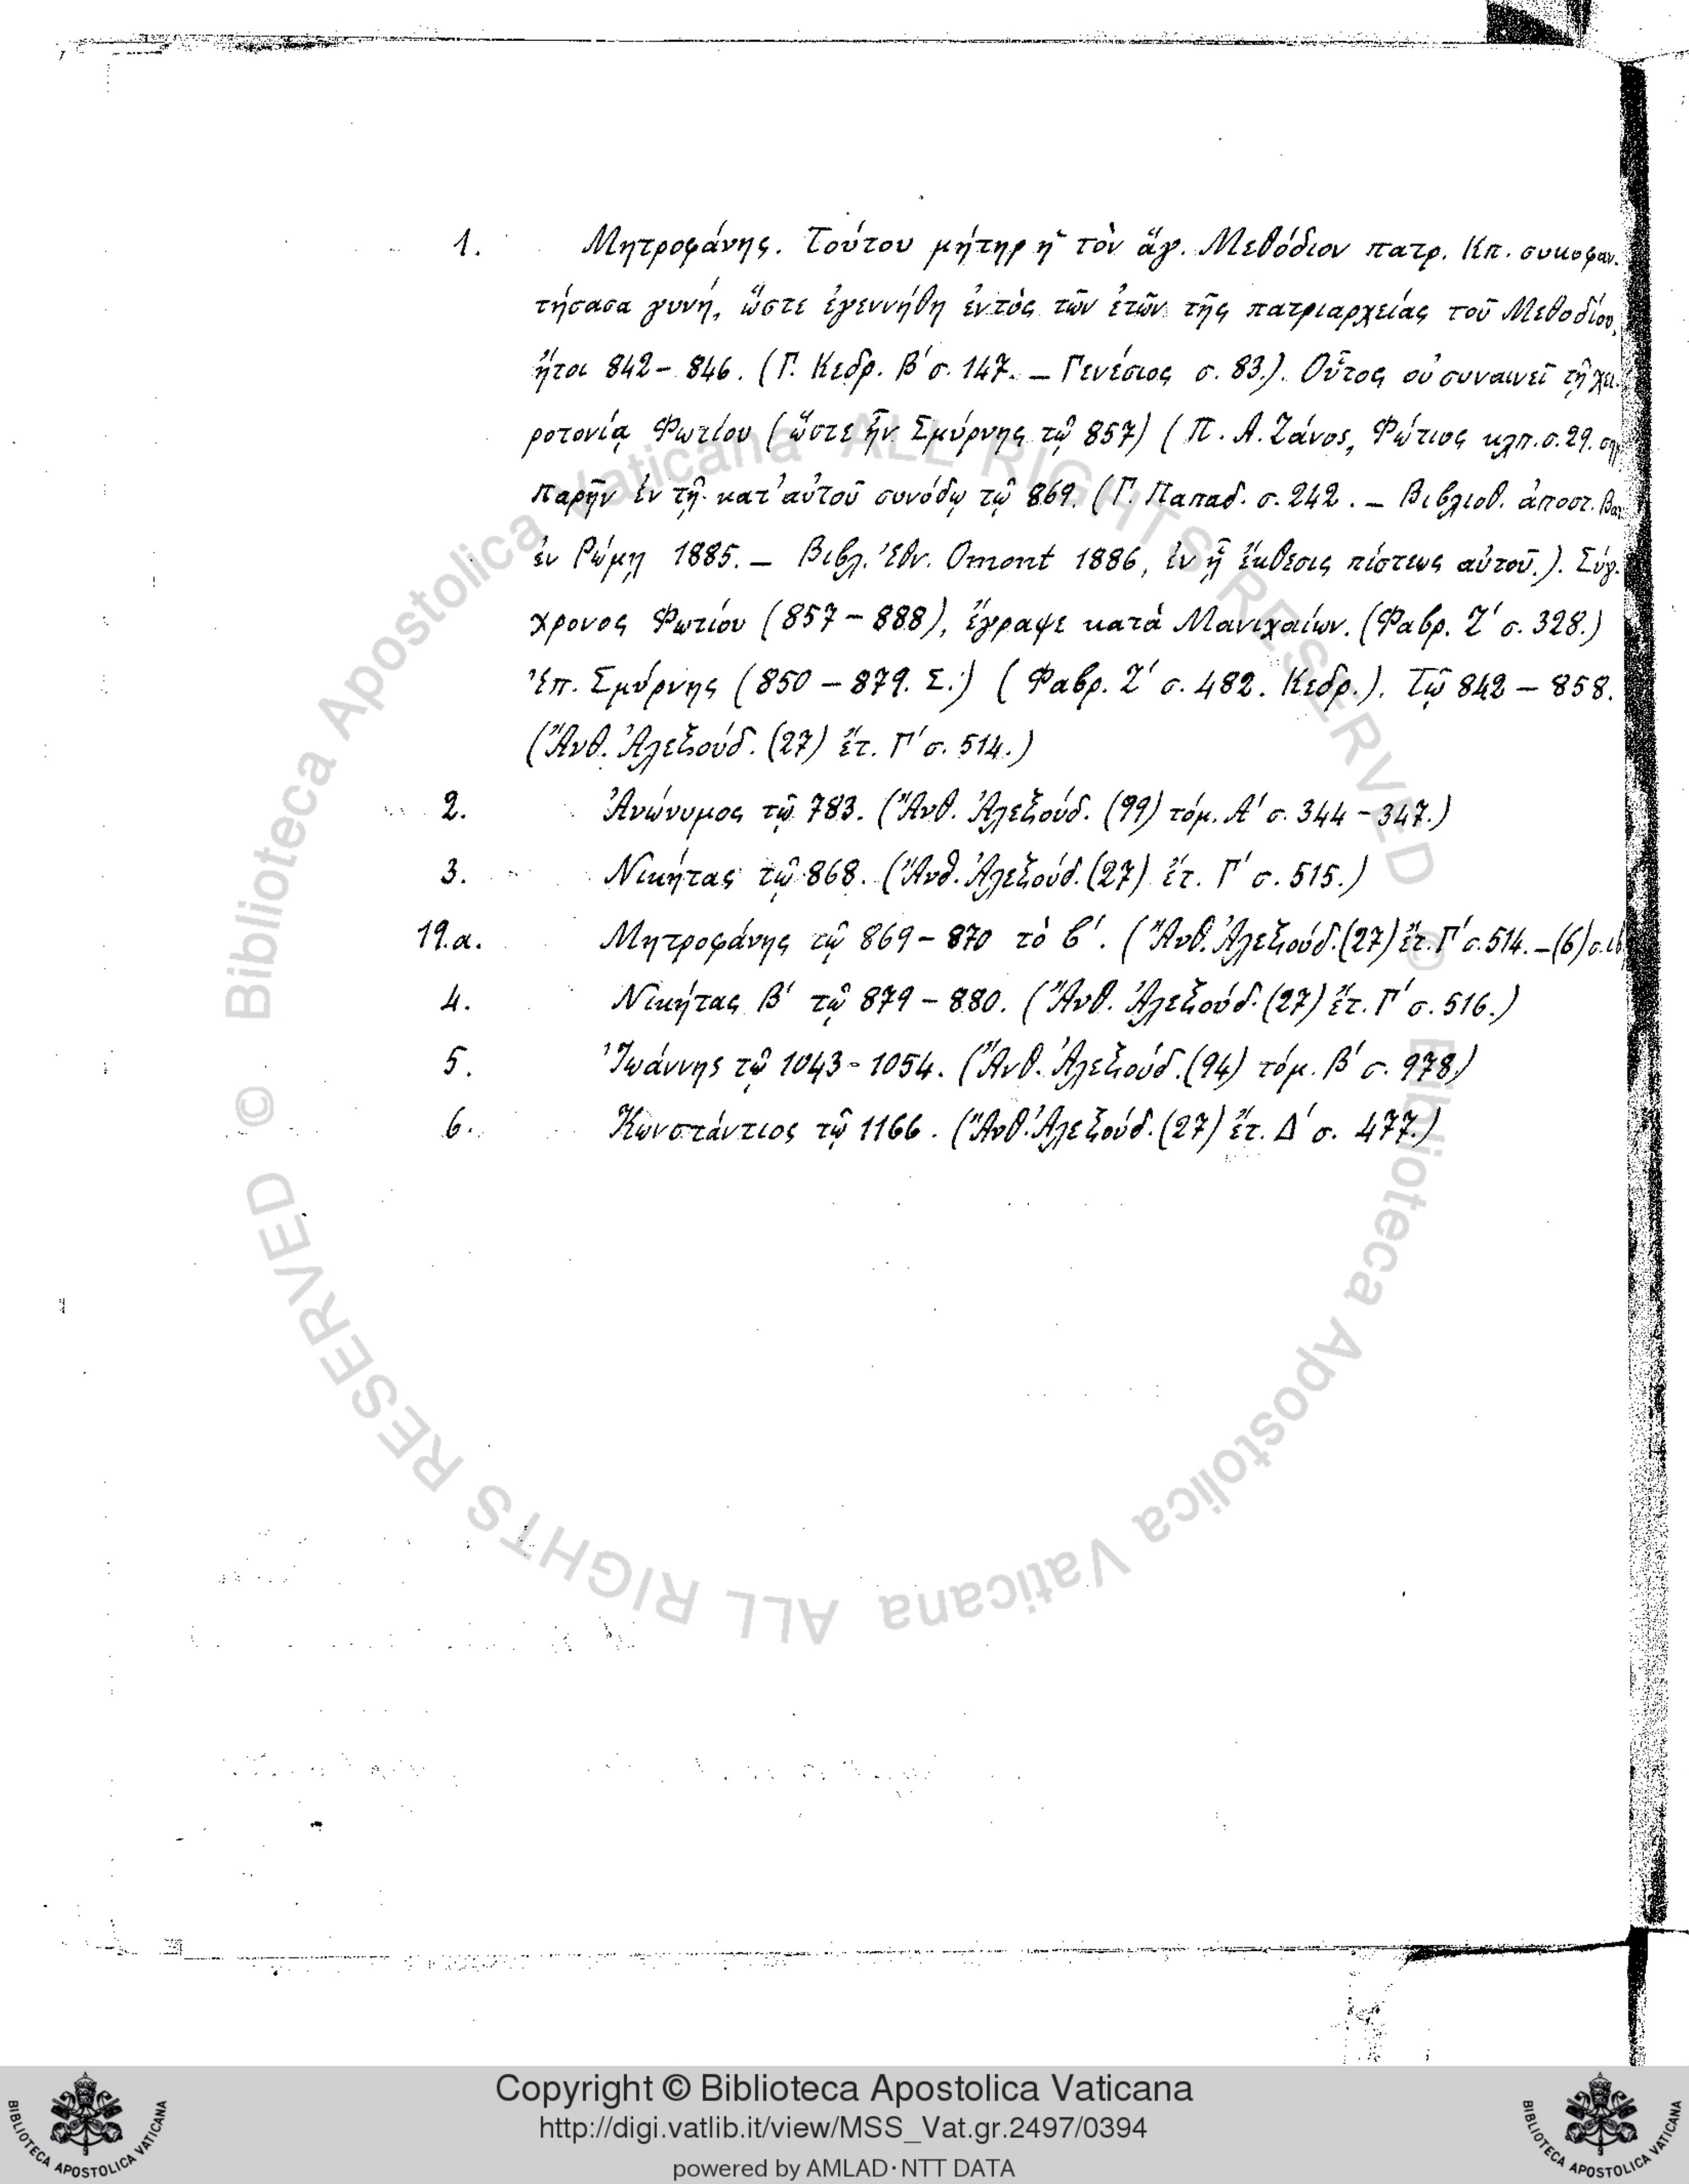 1. Μητροφάνης. Τούτου μήτηρ ἡ τὸν ἅγ. Μεθόδιον πατρ. Κπ. συκοφαν.
τήσασα γυνή, ὥστε ἐγεννήθη ἐντὸς τῶν ἐτῶν τῆς πατριαρχείας τοῦ Μεθοδίου,
ἤτοι 842 – 846. (Γ. Κεδρ. Β΄ σ. 147. – Γενέσιος σ. 83.). Οὗτος οὐ συναινεῖ τῇ χει.
ροτονίᾳ Φωτίου (ὥστε ἦν Σμύρνης τῷ 857) (Π. Α. Ζάνος, Φώτιος κλπ. σ. 29.
παρῆν ἐν τῇ κατ' αὐτοῦ συνόδῳ τῷ 869. (Γ. Παπαδ. σ. 242. – Βιβλιοθ. ἀποστ.
ἐν Ρώμῃ 1885. – Βιβλ. Ἐθν. Omont 1886, ἐν ᾗ ἔκθεσις πίστεως αὐτοῦ.). Σύγ.
χρονος Φωτίου (857 – 888), ἔγραψε κατὰ Μανιχαίων. (Φαβρ. Ζ΄ σ. 328.)
Ἐπ. Σμύρνης (850 – 879. Σ.) (Φαβρ. Ζ΄ σ. 482. Κεδρ.). Τῷ 842 – 858.
(Ἄνθ. Ἀλεξούδ. (27) ἔτ. Γ΄ σ. 514.)
2. Ἀνώνυμος τῷ 783. (Ἄνθ. Ἀλεξούδ. (99) τόμ. Α΄ σ. 344 – 347.)
3. Νικήτας τῷ 868. (Ἄνθ. Ἀλεξούδ. (27) ἔτ. Γ΄ σ. 515.)
19.α. Μητροφάνης τῷ 869 – 870 τὸ β΄. (Ἄνθ. Ἀλεξούδ. (27) ἔτ. Γ΄ σ. 514. – (6)
4. Νικήτας Β΄ τῷ 879 – 880. (Ἄνθ. Ἀλεξούδ. (27) ἔτ. Γ΄ σ. 516.)
5. Ἰωάννης τῷ 1043 – 1054. (Ἄνθ. Ἀλεξούδ. (94) τόμ. Β΄ σ. 978.)
6. Κωνστάντιος τῷ 1166. (Ἄνθ. Ἀλεξούδ. (27) ἔτ. Δ΄ σ. 477.)
© Biblioteca Apostolica Vaticana ALL RIGHTS RESERVED
© Biblioteca Apostolica Vaticana ALL RIGHTS RESERVED
Copyright © Biblioteca Apostolica Vaticana
http://digi.vatlib.it/view/MSS_Vat.gr.2497/0394
powered by AMLAD·NTT DATA
BIBLIOTECA APOSTOLICA VATICANA
BIBLIOTECA APOSTOLICA VATICANA